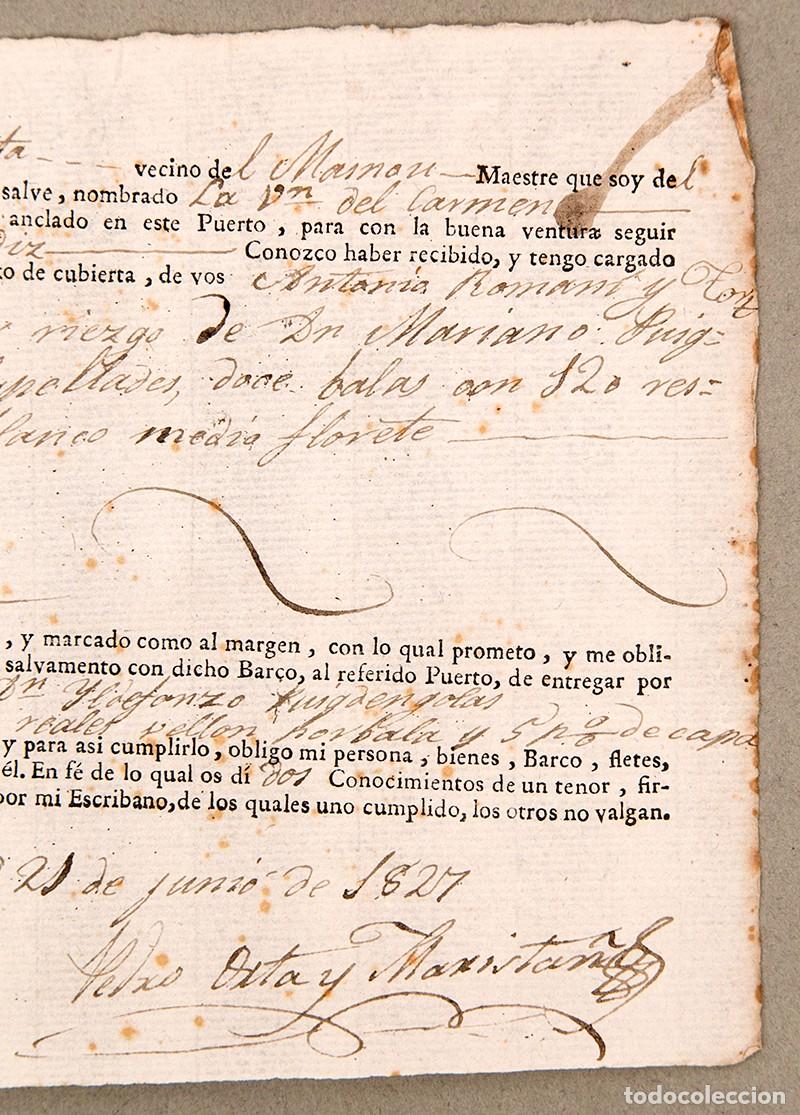 ta - - - vecino del Masnou — Maestre que soy del
salve, nombrado La Vn del Carmen
anclado en este Puerto, para con la buena ventura seguir
diz — Conozco haber recibido, y tengo cargado
xo de cubierta, de vos Antonia Romani y
riezgo de Dn Mariano Puig-
pellades, doce balas con 120 res=
lanco media florete —
, y marcado como al margen, con lo qual prometo, y me obli-
salvamento con dicho Barço, al referido Puerto, de entregar por
Dn Yldefonzo Puigdengolas
reales vellon por bala y 5 p% de capa
y para asi cumplirlo, obligo mi persona, bienes, Barco, fletes,
él. En fé de lo qual os dí dos Conocimientos de un tenor, fir-
por mi Escribano, de los quales uno cumplido, los otros no valgan.
21 de junio de 1827
Pedro Orta y Maristany
todocoleccion